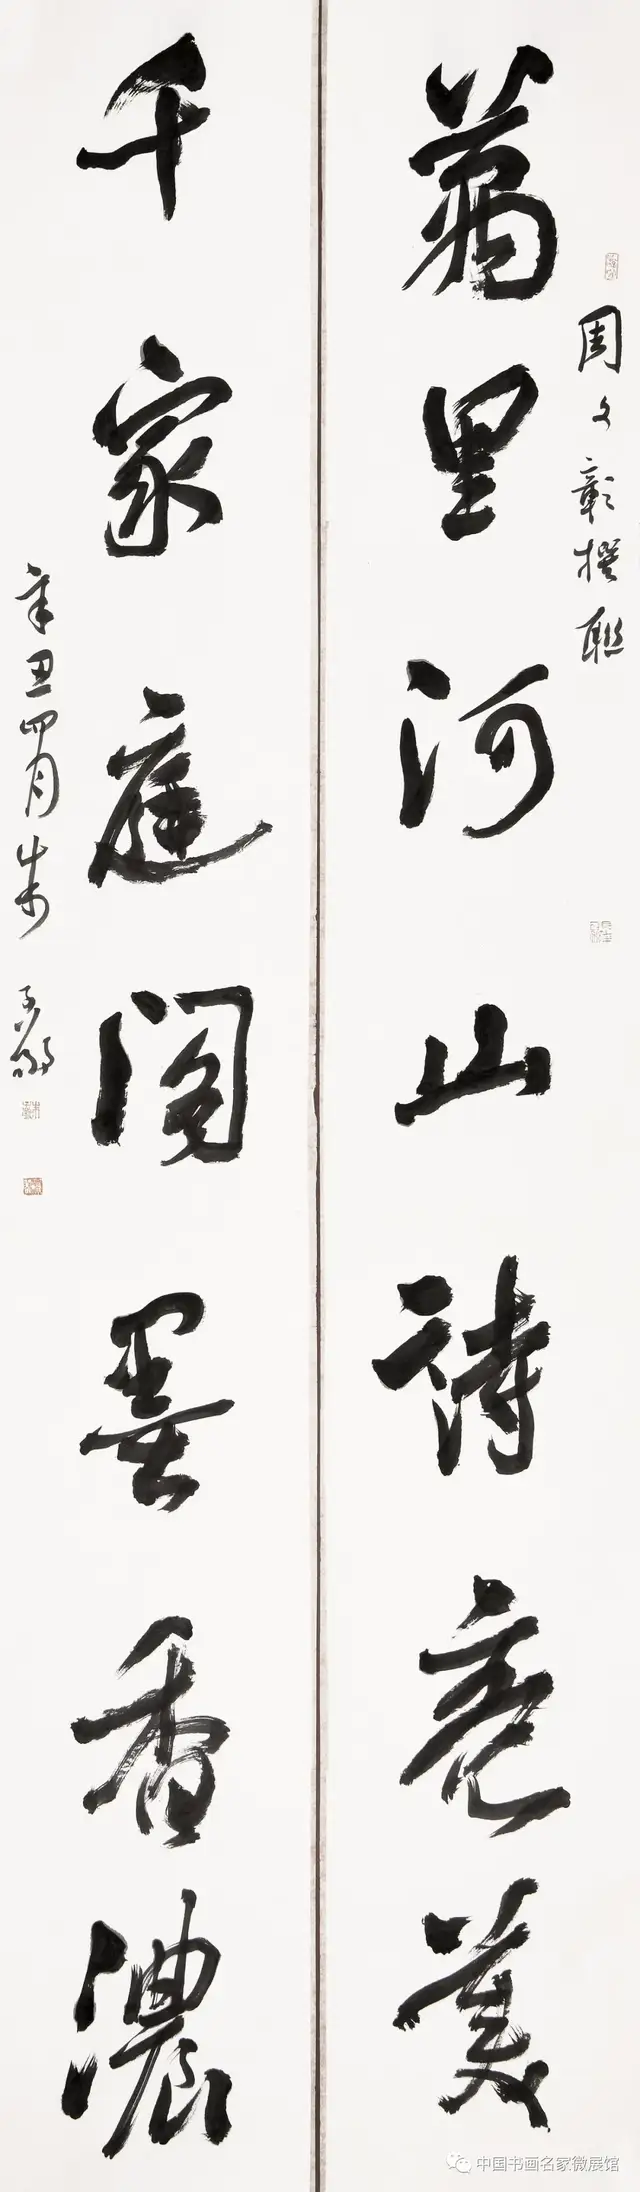 周文彰撰聯
萬里河山詩意美
千家庭閣墨香濃
辛丑四月朱
中国书画名家微展馆